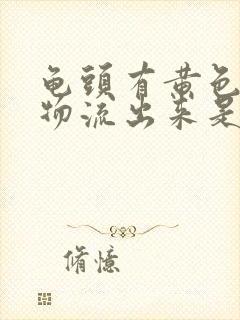 龟頭有黄色
物流出来是
脩憶